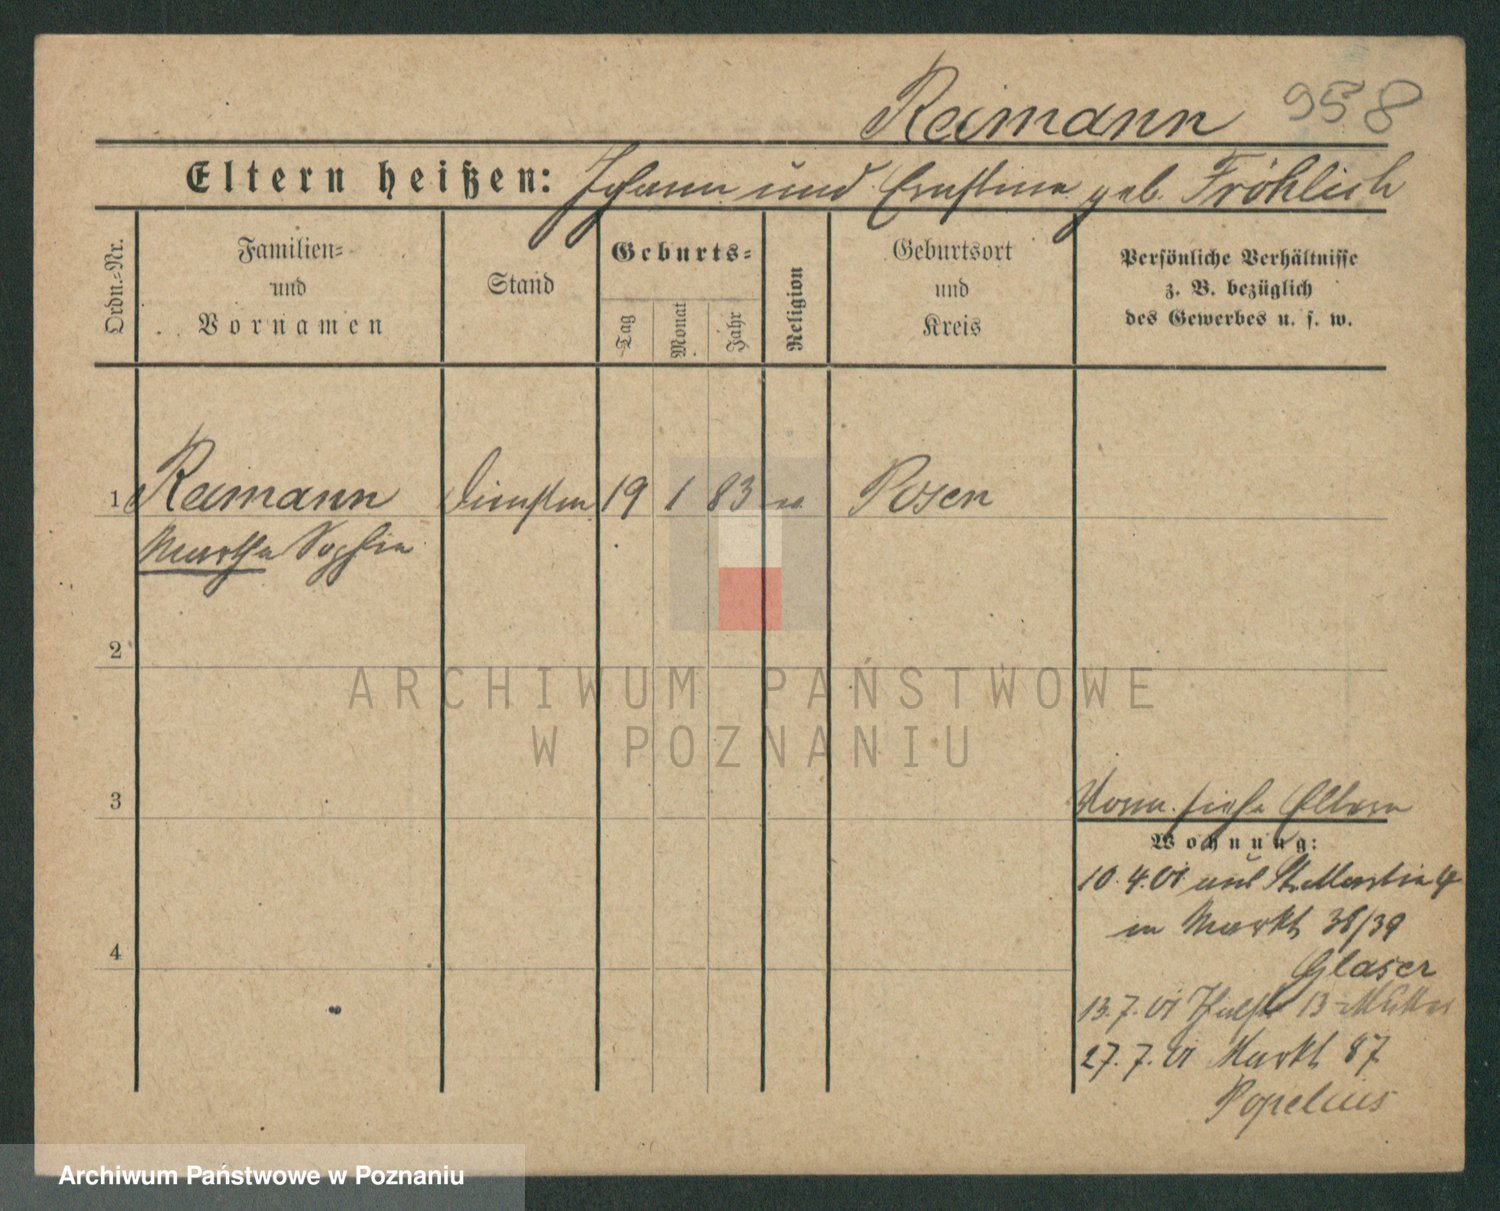 Reimann 958
Eltern heißen: Johann und Ernstine geb. Fröhlich
Ordn.-Nr.
Familien-
und
Vornamen
Stand
Geburts-
Tag
Monat
Jahr
Religion
Geburtsort
und
Kreis
Persönliche Verhältnisse
z. B. bezüglich
des Gewerbes u. s. w.
1 Reimann 19 1 83 Posen
Martha Sophie
2
ARCHIWUM PAŃSTWOWE
W POZNANIU
3 siehe Eltern
Wohnung:
10.4.01 aus St. Martin
Markt 38/39
4
Glaser
13.7.01 13
27.7.01 Markt 87
Popelius
Archiwum Państwowe w Poznaniu